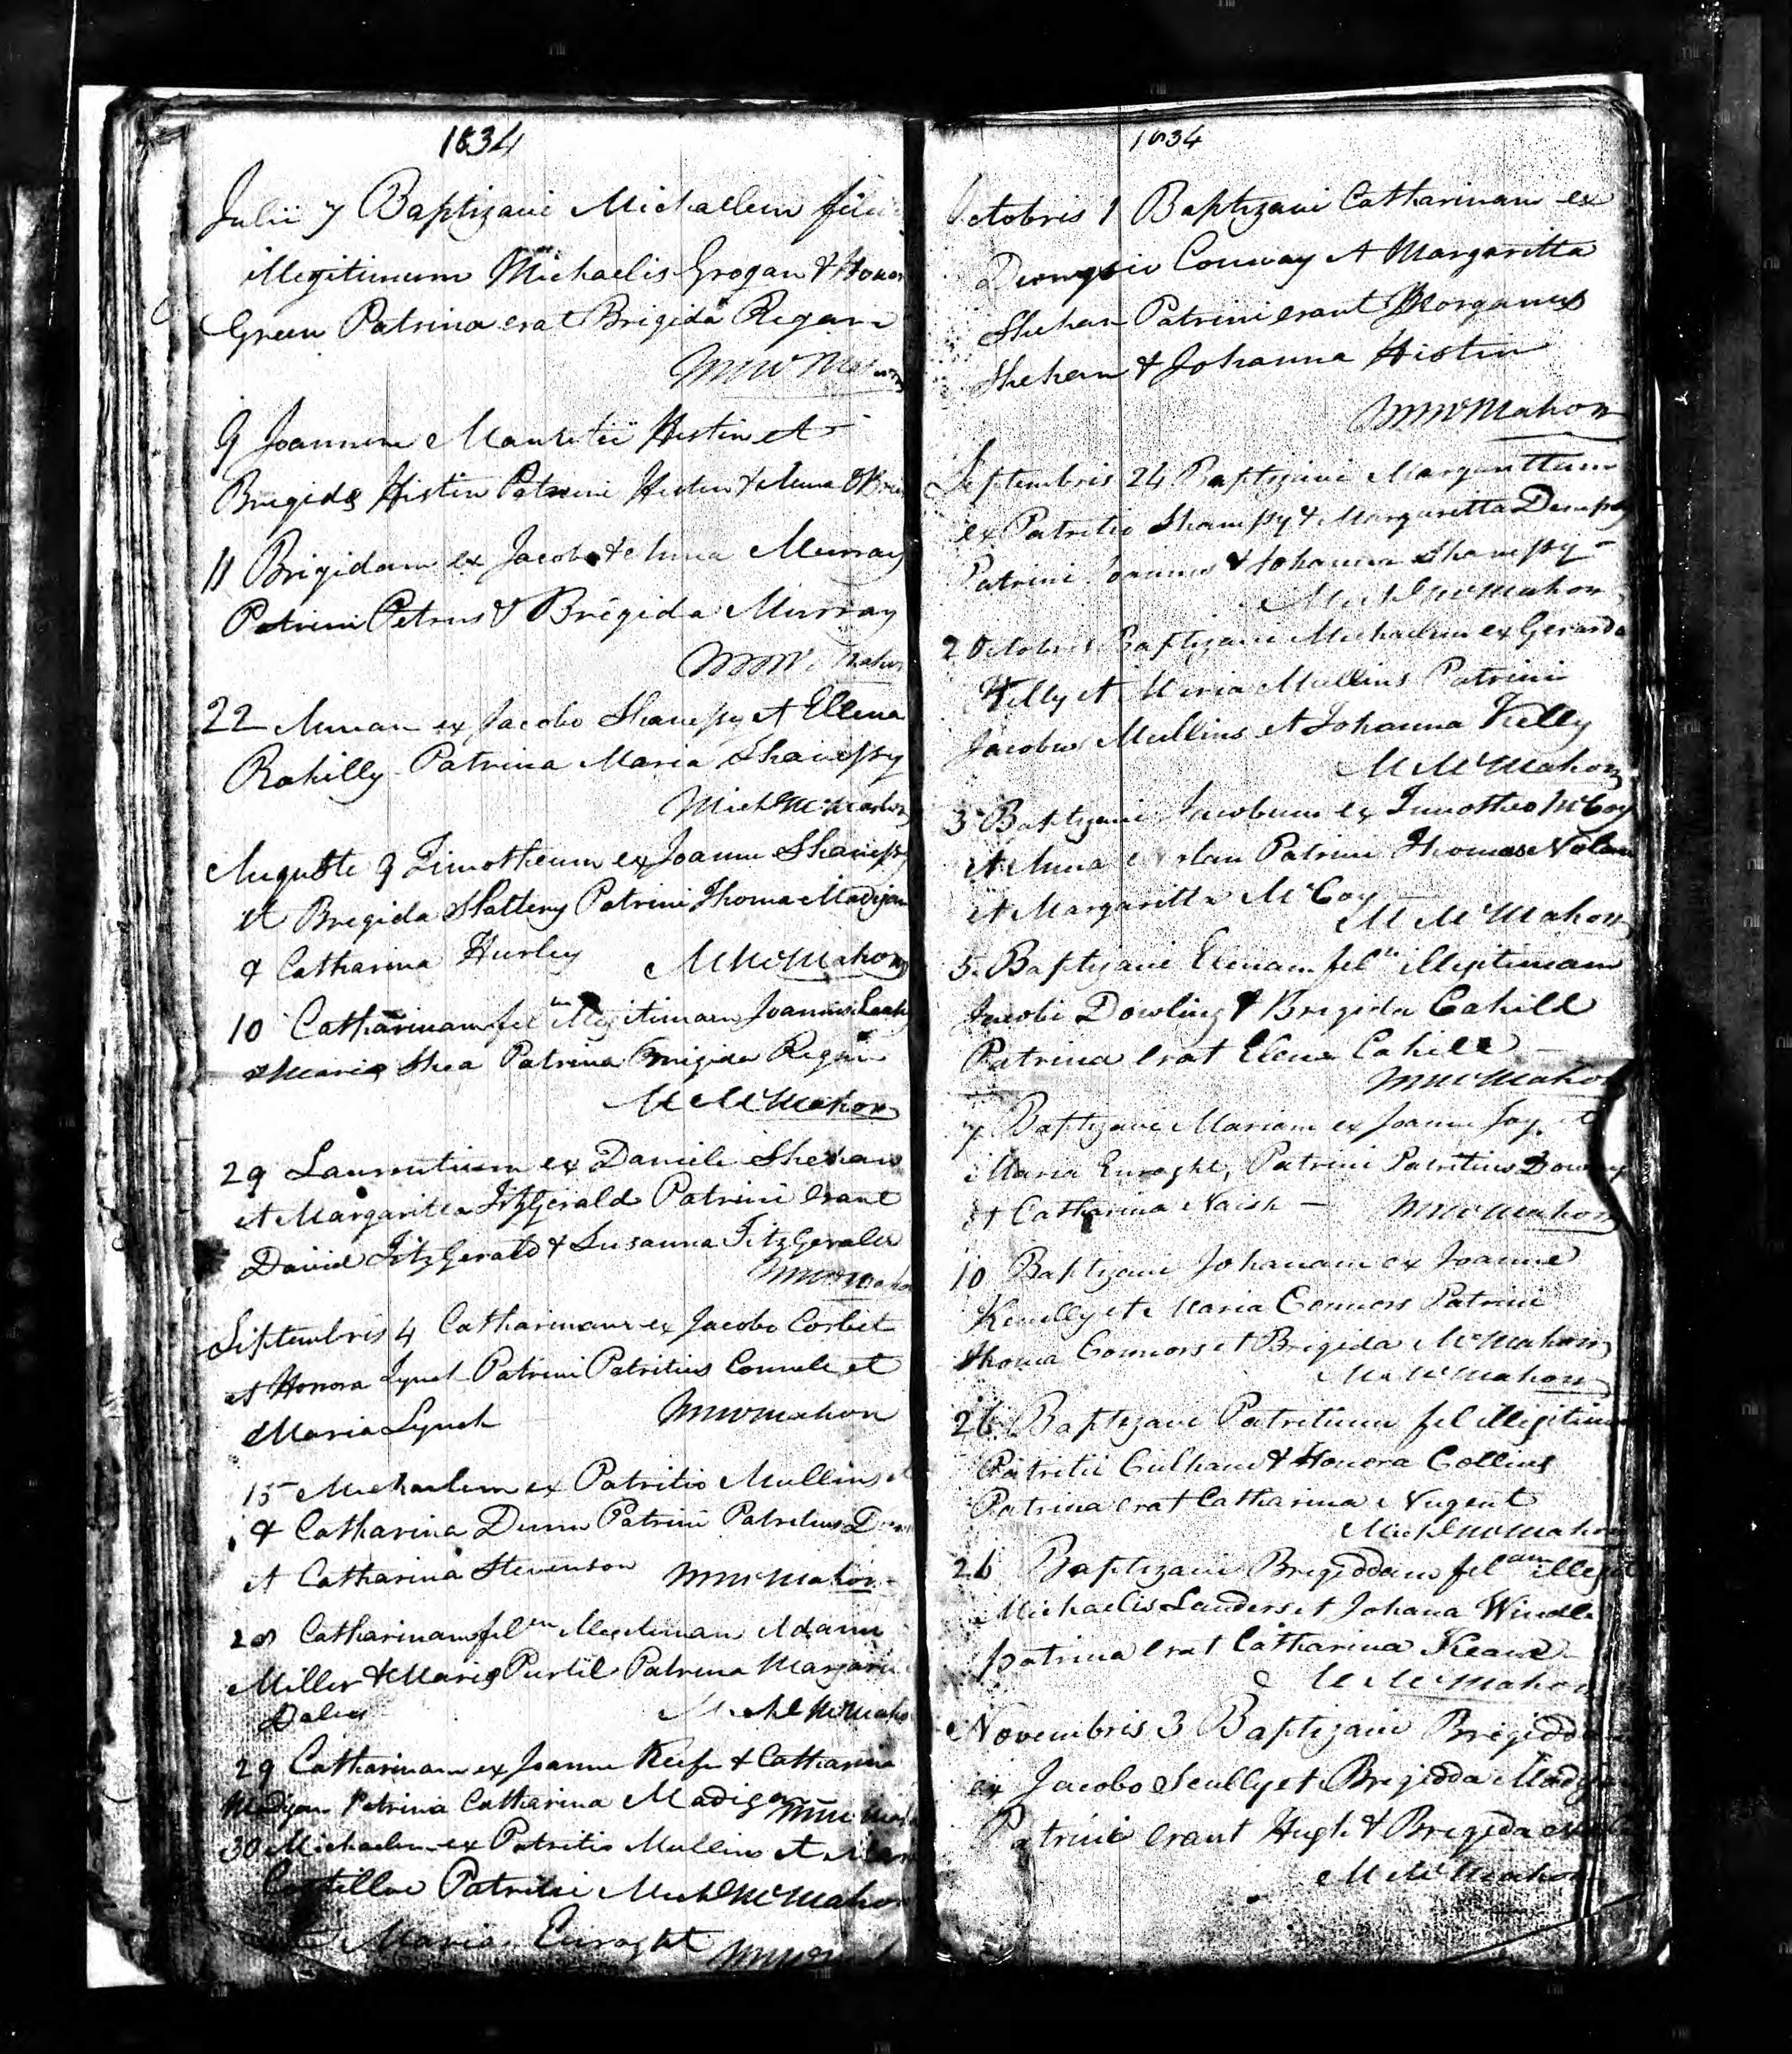 1834
Julii 7 Baptizavi Michaelem
illegitimum Michaelis Grogan & Honor
Green Patrina erat Brigida Regan
9 Joannem Mauritii Histin et
Brigida Histin Patrini Histin &
11 Brigidam ex Jacobo & Anna Murray
Patrini Petrus & Brigida Murray
22 Annam ex Jacobo Shanessy et Ellena
Rahilly Patrina Maria Shanessy
Michl McMahon
Auguste 9 Timotheum ex Joanne Shanessy
et Bregida Slattery Patrini Thoma Madigan
& Catharina Hurley M McMahon
10 Catharinam fil am illegitimam Joannis Leahy
& Maria Shea Patrina Brigida Regan
M McMahon
29 Laurentium ex Daniele Shehan
et Margaritta FitzGerald Patrini erant
David FitzGerald & Susanna FitzGerald
Septembris 4 Catharinam ex Jacobo Corbet
et Honora Lynch Patrini Patritius et
Maria Lynch MMcMahon
15 Michaelem ex Patritio Mullins
& Catharina Dunn Patrini Patritius
et Catharina Stevenson MMcMahon
28 Catharinam fil am Adami
Miller & Maria Purtil Patrina
Daley Michl McMahon
29 Catharinam ex Joanne Keefe & Catharina
Madigan Patrina Catharina Madigan
30 Michaelem ex Patritio Mullins et
Costelloe Michl McMahon
Maria Enraght
1834
Octobris 1 Baptizavi Catharinam ex
Dionysio Conway et Margaritta
Shehan Patrini erant Morganus
Shehan & Johanna Histin
MMcMahon
Septembris 24 Baptizavi Margarittam
ex Patritio Shanessy & Margaritta Dempsey
Patrini Joannes & Johanna Shanessy
Michl McMahon
2 Octobris Baptizavi Michaelem ex Gerardo
Kelly et Maria Mullins Patrini
Jacobus Mullins et Johanna Kelly
M McMahon
3 Baptizavi Jacobum ex Timotheo McCoy
et Anna Nolan Patrini Thomas Nolan
et Margaritta McCoy
M McMahon
5 Baptizavi Elenam fil illegitimam
Jacobi Dowling & Brigida Cahill
Patrina erat Elena Cahill
MMcMahon
7 Baptizavi Mariam ex Joanne Joy et
Maria Enraght, Patrini Patritius
et Catharina Naish MMcMahon
10 Baptizavi Johanam ex Joanne
Kenelly et Maria Connors Patrini
Thoma Connors et Brigida McMahon
M McMahon
26 Baptizavi Patritium fil illegitimum
Patritii Culhane & Honora Collins
Patrina erat Catharina Nugent
Michl McMahon
26 Baptizavi Brigiddam fil am illegit
Michaelis Landers et Johana Windle
patrina erat Catharina Keane
M McMahon
Novembris 3 Baptizavi Brigiddam
ex Jacobo Scully et Brigidda Madigan
Patrini erant Hugh & Bregida
M McMahon